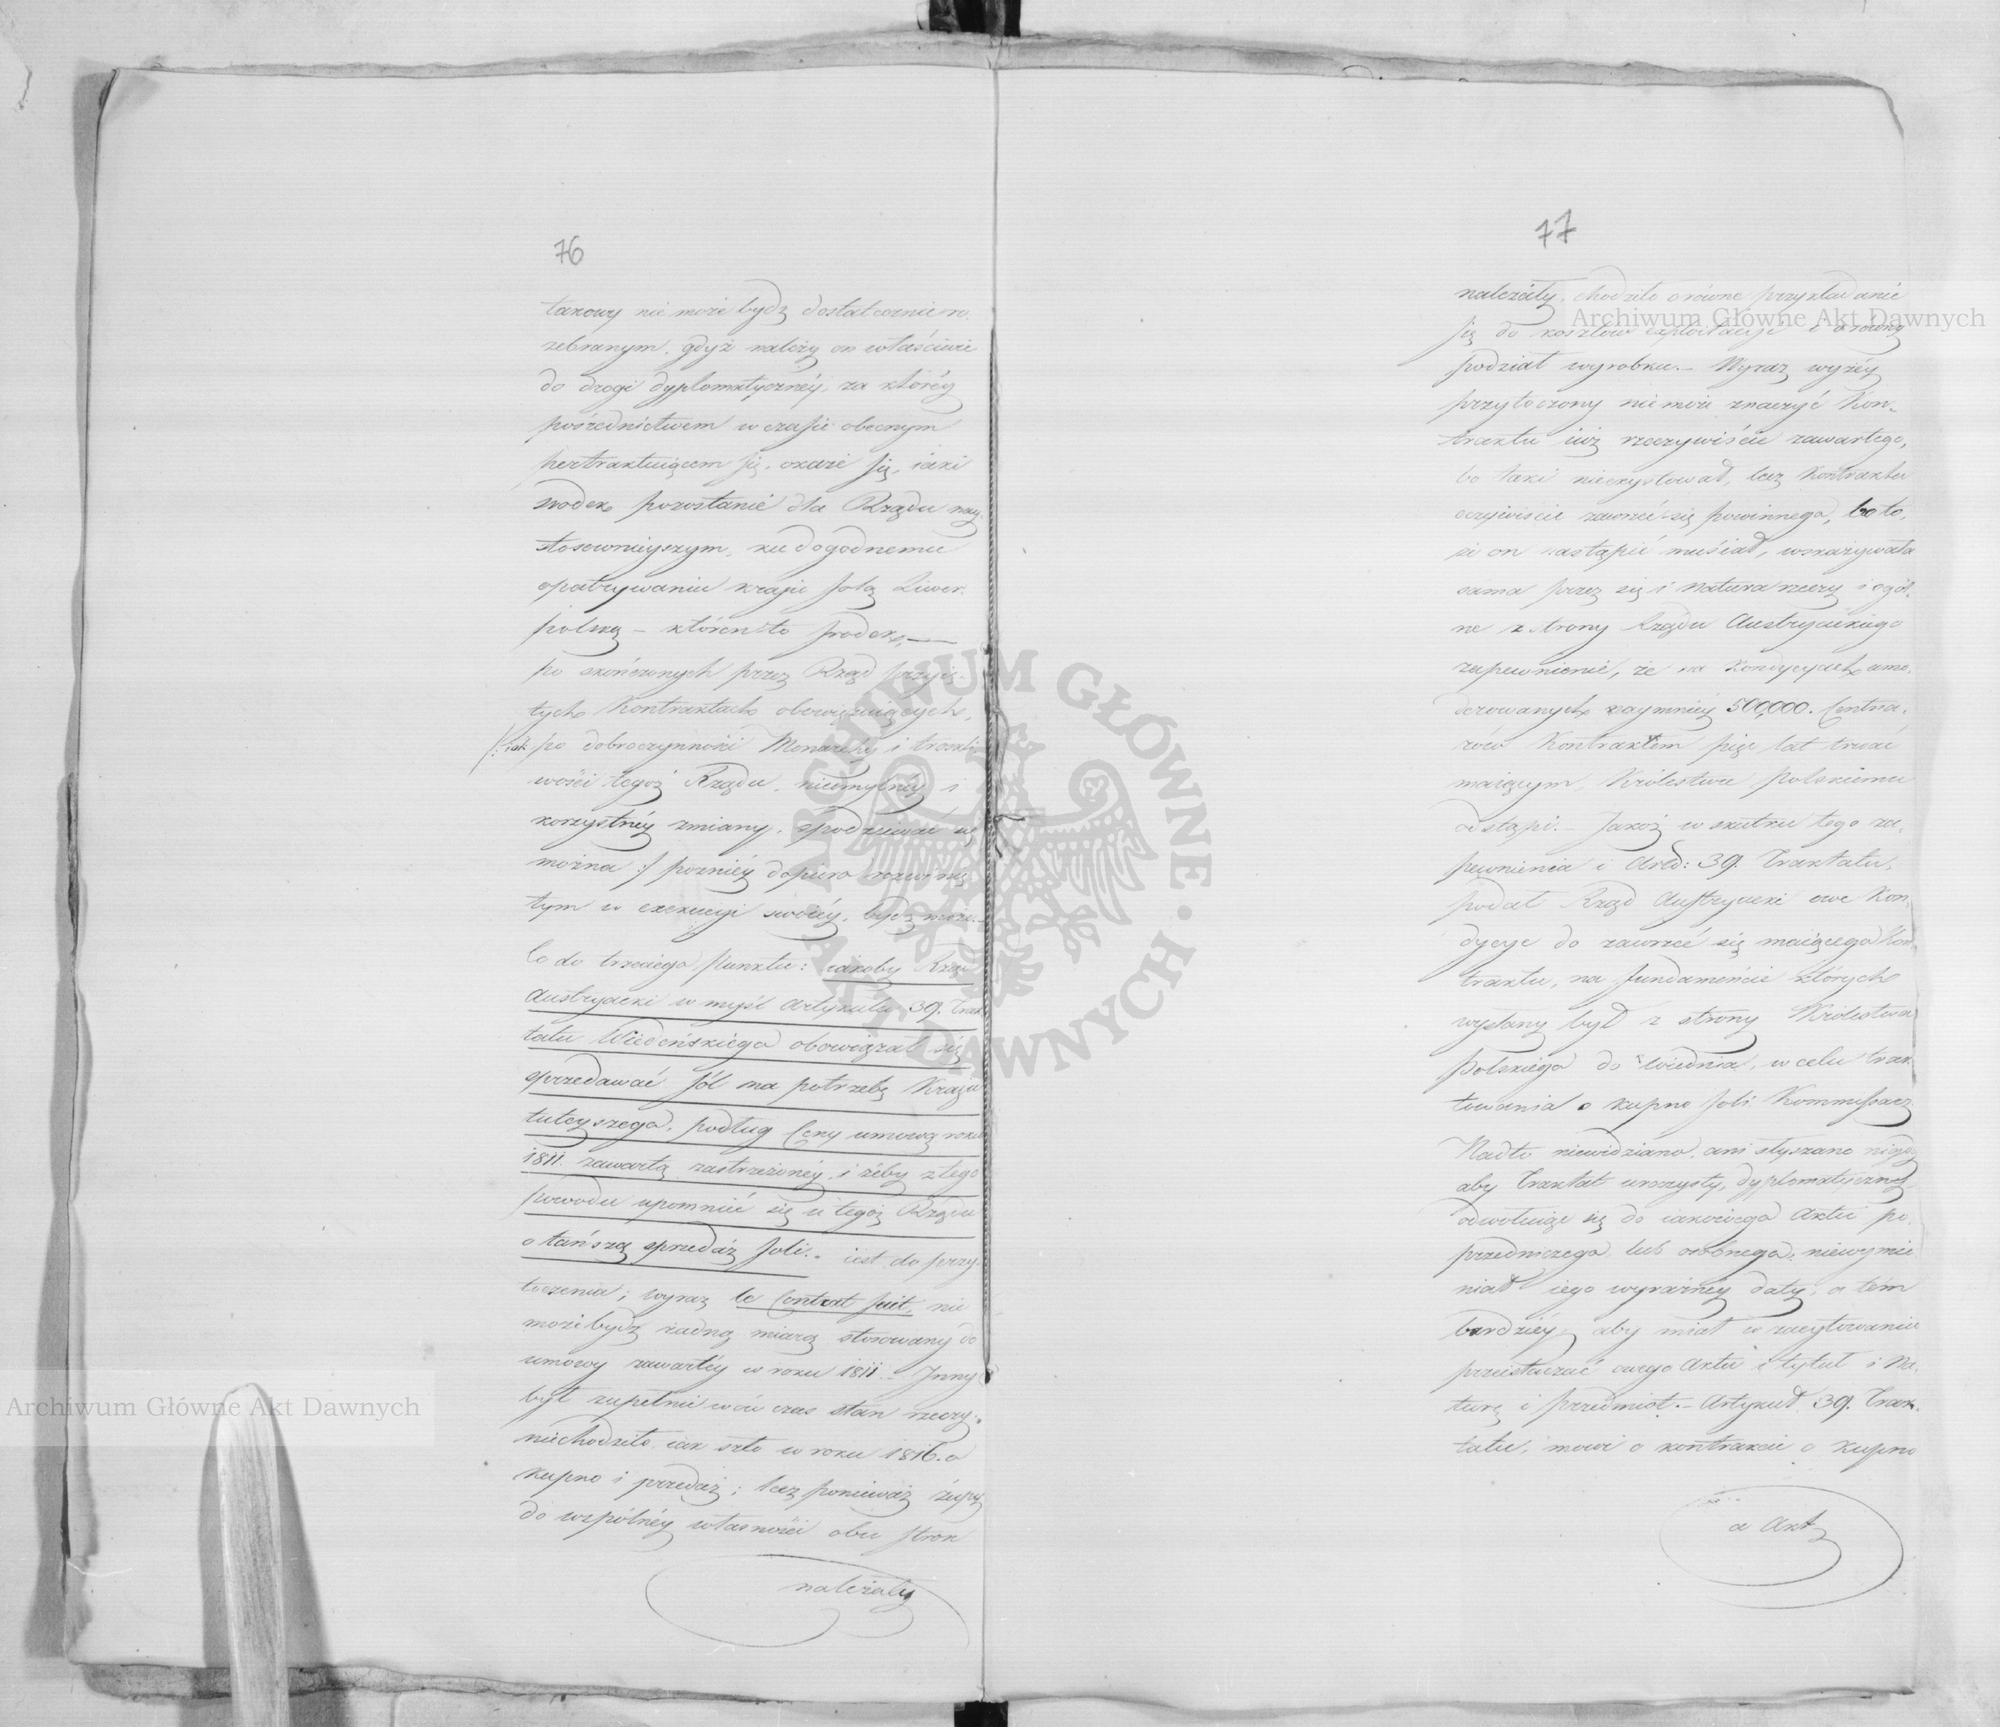 76
takowy nie może bydz dostatecznie ro-
zebranym, gdyż należy on właściwie
do drogi dyplomatycznéy, za któréy
pośrednictwem w czasie obecnym
pertraktuiącem się, okaże się, iaki
srodek pozostanie dla Rządu nay-
stosownieyszym, ku dogodnemu
opatrywaniu kraju solą Liwer-
polską – któren to srodek, —
po skończonych przez Rząd przyię-
tych Kontraktach obowiązuiących,
/: iak po dobroczynności Monarchy i troskli-
wości tegoż Rządu, niemylnéy i
korzystnéy zmiany, spodziewać się
można :/ poźniéy dopiero rozwinię-
tym w exekucyi swoiéy, bydz może. –
Co do trzeciego Punktu: iakoby Rząd
Austryacki w myśl Artykułu 39. Trak-
tatu Wiedeńskiego obowiązał się
sprzedawać sól na potrzebę Kraju
tuteyszego, podług Ceny umową roku
1811. zawartą zastrzeżonéy, i żeby z tego
powodu upomnieć się u tegoż Rządu
o tańszą sprzedaż soli. – iest do przy-
toczenia; wyraz le Contrat fait, nie
może bydz żadną miarą stosowany do
umowy zawartéy w roku 1811. – Inny
był zupełnie wów czas stan rzeczy;
niechodziło iak szło w roku 1816. o
kupno i przedaż; lecz ponieważ żupy
do wspólnéy własności obu stron
należały
77
należały, chodziło o równe przykładanie
się do kosztów exploitacyi i o równy
podział wyrobku. – Wyraz wyżéy
przytoczony nie może znaczyć Kon-
traktu iuż rzeczywiście zawartego,
bo taki nieexystował, lecz Kontraktu
oczywiście zawrzeć się powinnego, bo to,
że on nastąpić musiał, wskazywała
sama przez się i natura rzeczy i ogól-
ne z strony Rządu Austryackiego
zapewnienie, że na Kondycyach ame-
derowanych naymniéy 500,000. Centna-
rów Kontraktem pięć lat trwać
maiącym, Królestwu Polskiemu
odstąpi. – Jakoż w skutku tego za-
pewnienia i Art: 39. Traktatu,
podał Rząd Austryacki owe Kon-
dycye do zawrzeć się maiącego Kon-
traktu, na fundamencie których
wysłany był z strony Królestwa
Polskiego do Wiednia, w celu trak-
towania o kupno soli Kommissarz
Nadto niewidziano, ani słyszano nigdy
aby Traktat uroczysty, dyplomatyczny
odwołuiąc się do iakowego Aktu po-
przedniczego lub osobnego, niewymie-
niał iego wyraźnéy daty, a tém
bardziéy, aby miał w zacytowaniu
przeistaczać owego Aktu i tytuł i na-
turę i przedmiot. – Artykuł 39. Trak-
tatu, mówi o kontrakcie o kupno
a Akt
Archiwum Główne Akt Dawnych
Archiwum Główne Akt Dawnych
ARCHIWUM GŁÓWNE · AKT DAWNYCH ·